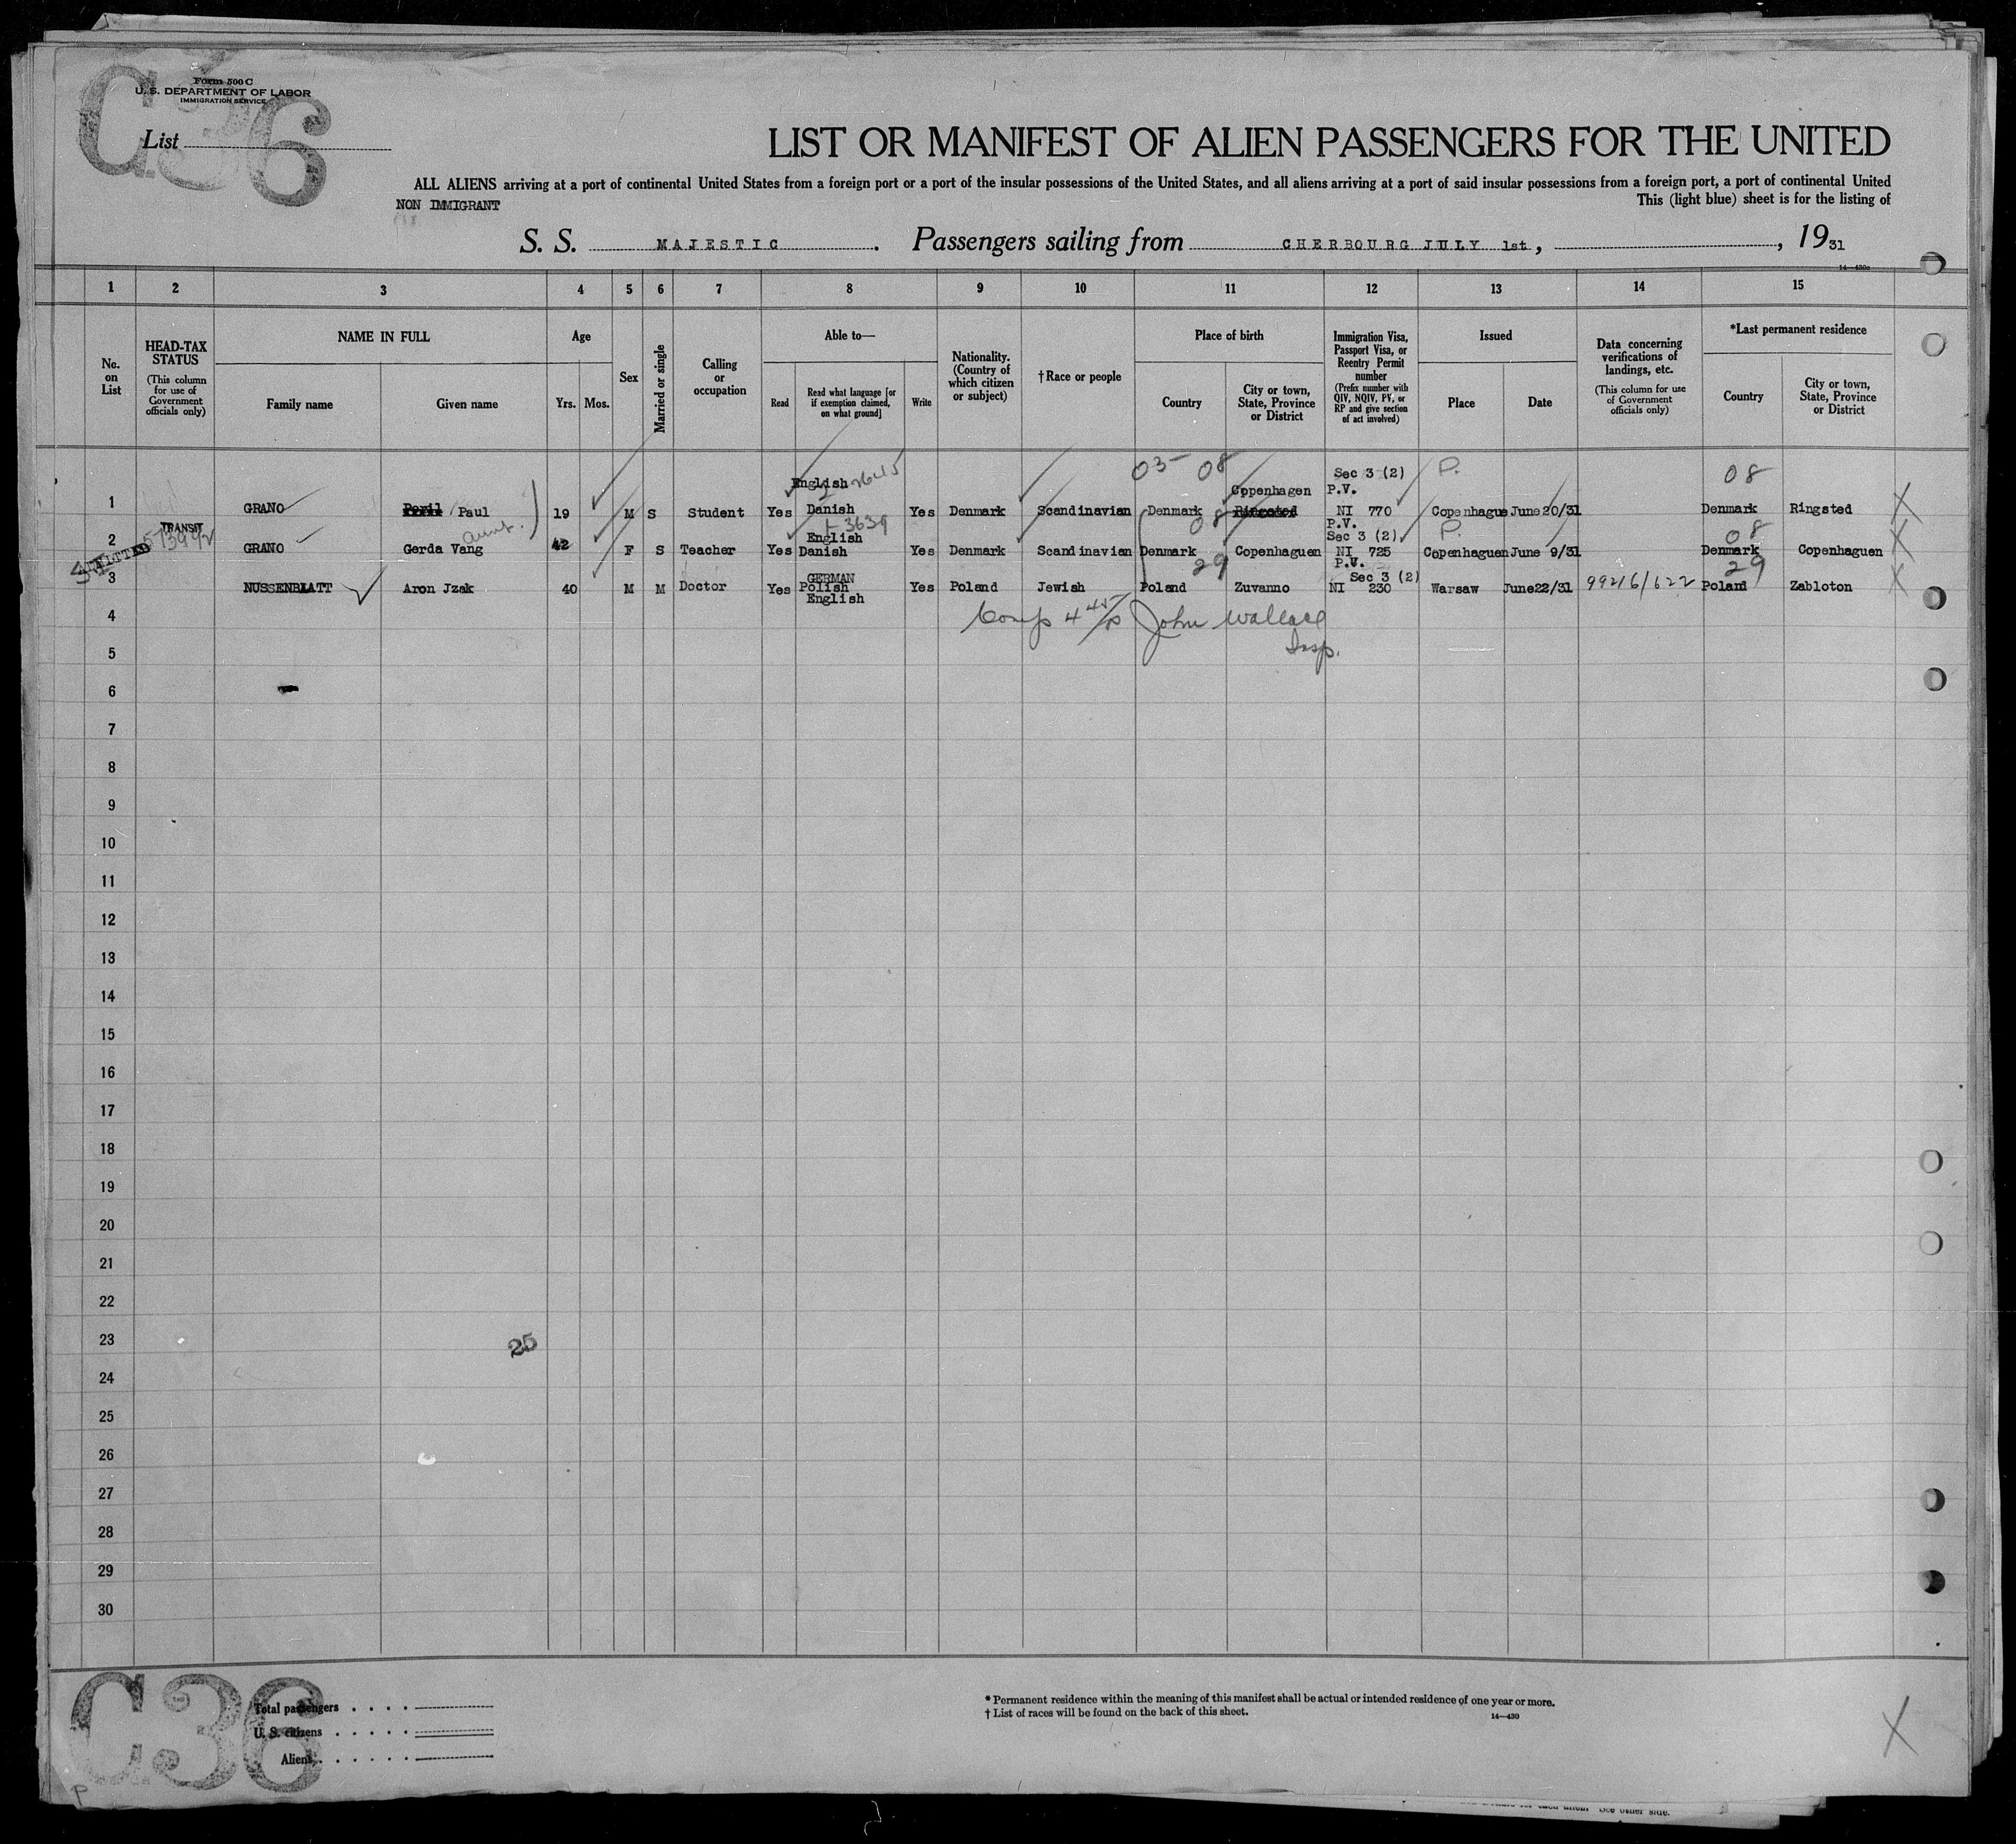 C36
Form 500 C
U. S. DEPARTMENT OF LABOR
IMMIGRATION SERVICE
List
LIST OR MANIFEST OF ALIEN PASSENGERS FOR THE UNITED
ALL ALIENS arriving at a port of continental United States from a foreign port or a port of the insular possessions of the United States, and all aliens arriving at a port of said insular possessions from a foreign port, a port of continental United
NON IMMIGRANT
This (light blue) sheet is for the listing of
S. S. MAJESTIC. Passengers sailing from CHERBOURG JULY 1st, , 1931
14—430c
1 2 3 4 5 6 7 8 9 10 11 12 13 14 15
No. on List
HEAD-TAX STATUS
(This column for use of Government officials only)
NAME IN FULL
Family name
Given name
Age
Yrs. Mos.
Sex
Married or single
Calling or occupation
Able to—
Read
Read what language [or if exemption claimed, on what ground]
Write
Nationality. (Country of which citizen or subject)
† Race or people
Place of birth
Country
City or town, State, Province or District
Immigration Visa, Passport Visa, or Reentry Permit number
(Prefix number with QIV, NQIV, PV, or RP and give section of act involved)
Issued
Place
Date
Data concerning verifications of landings, etc.
(This column for use of Government officials only)
*Last permanent residence
Country
City or town, State, Province or District
03 08 Sec 3 (2) P. 08
English Copenhagen P.V.
1 GRANO Paul 19 M S Student Yes Danish Yes Denmark Scandinavian Denmark Ringsted NI 770 Copenhague June 20/31 Denmark Ringsted
TRANSIT aunt. 3639 08 P.V. P. 08
English Sec 3 (2)
2 GRANO Gerda Vang 42 F S Teacher Yes Danish Yes Denmark Scandinavian Denmark Copenhaguen NI 725 Copenhaguen June 9/31 Denmark Copenhaguen
29 P.V. 29
GERMAN Sec 3 (2)
3 NUSSENBLATT Aron Jzak 40 M M Doctor Yes Polish Yes Poland Jewish Poland Zuvanno NI 230 Warsaw June22/31 99216/622 Poland Zabloton
English
4 John Wallace
5 Insp.
6
7
8
9
10
11
12
13
14
15
16
17
18
19
20
21
22
23 25
24
25
26
27
28
29
30
C36
Total passengers
U. S. citizens
Aliens
* Permanent residence within the meaning of this manifest shall be actual or intended residence of one year or more.
† List of races will be found on the back of this sheet.
14—430
P
See other side.